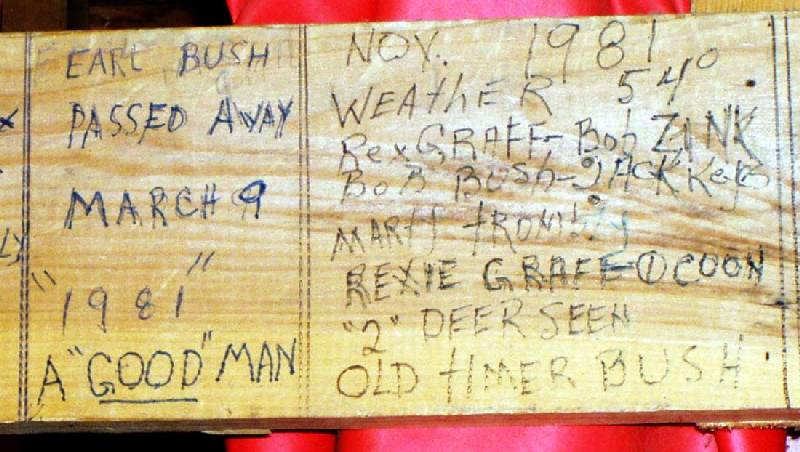 EARL BUSH
PASSED AWAY
MARCH 9
"1981"
A "GOOD" MAN
NOV. 1981
WEATHER 54°
Rex GRAFF - Bob ZINK
BOB BUSH - JACK
MARTY
REXIE GRAFF - ① COON
"2" DEER SEEN
OLD TIMER BUSH